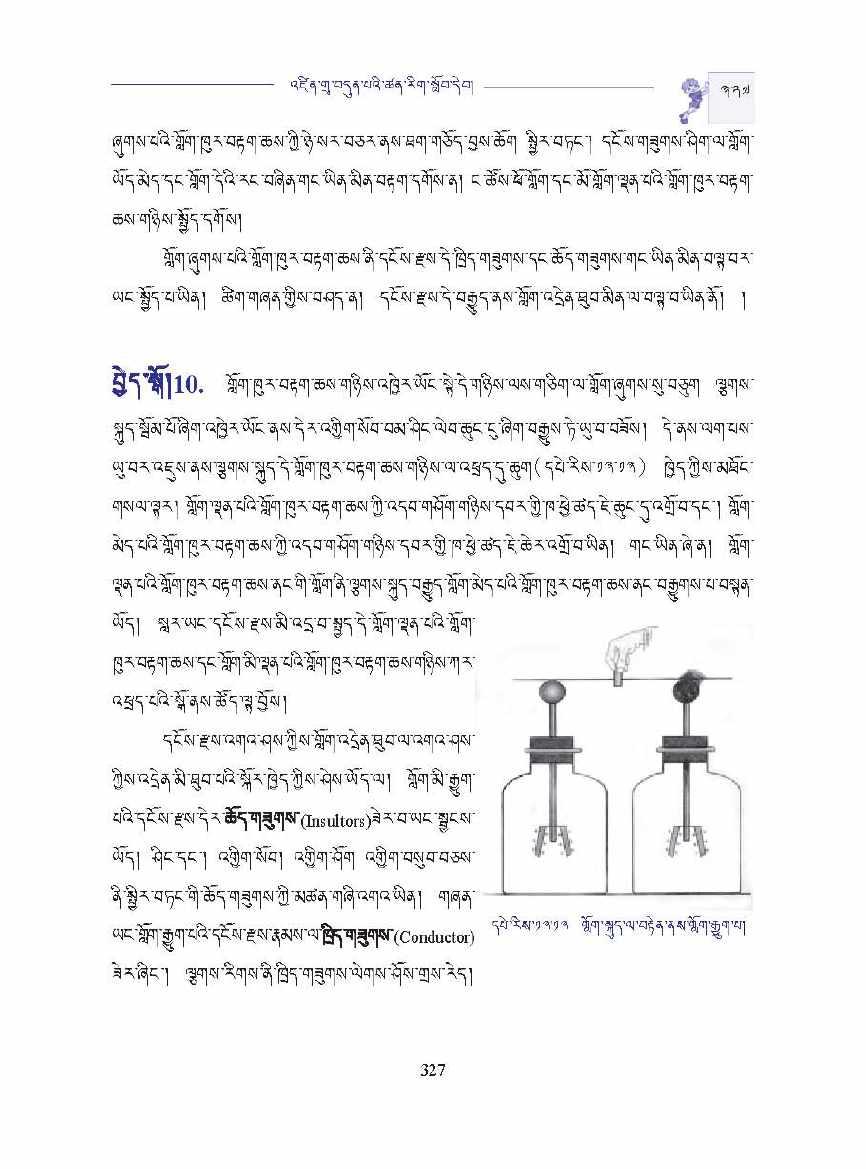 འཛིན་གྲྭ་བདུན་པའི་ཚན་རིག་སློབ་དེབ།
༣༢༧
ཞུགས་པའི་གློག་ཁུར་བརྟག་ཆས་ཀྱི་ཉེ་སར་བཅར་ནས་ཐག་གཅོད་བྱས་ཆོག སྤྱིར་བཏང་། དངོས་གཟུགས་ཤིག་ལ་གློག་
ཡོད་མེད་དང་གློག་དེའི་རང་བཞིན་གང་ཡིན་མིན་བརྟག་དགོས་ན། ང་ཚོས་ཕོ་གློག་དང་མོ་གློག་ལྡན་པའི་གློག་ཁུར་བརྟག་
ཆས་གཉིས་སྤྱོད་དགོས།
གློག་ཞུགས་པའི་གློག་ཁུར་བརྟག་ཆས་ནི་དངོས་རྫས་དེ་ཁྲིད་གཟུགས་དང་ཆོད་གཟུགས་གང་ཡིན་མིན་བལྟ་བར་
ཡང་སྤྱོད་པ་ཡིན། ཚིག་གཞན་གྱིས་བཤད་ན། དངོས་རྫས་དེ་བརྒྱུད་ནས་གློག་འདྲེན་ཐུབ་མིན་ལ་བལྟ་བ་ཡིན་ནོ། །
བྱེད་སྒོ།10. གློག་ཁུར་བརྟག་ཆས་གཉིས་འཁྱེར་ཡོང་སྟེ་དེ་གཉིས་ལས་གཅིག་ལ་གློག་ཞུགས་སུ་བཅུག ལྕགས་
སྐུད་སྦོམ་པོ་ཞིག་འཁྱེར་ཡོང་ནས་དེར་འགྱིག་སོབ་བམ་ཤིང་ལེབ་ཆུང་ངུ་ཞིག་བརྒྱུས་ཏེ་ཡུ་བ་བཟོས། དེ་ནས་ལག་པས་
ཡུ་བར་འཇུས་ནས་ལྕགས་སྐུད་དེ་གློག་ཁུར་བརྟག་ཆས་གཉིས་ལ་འཕྲད་དུ་ཆུག(དཔེ་རིས་༡༣་༡༣) ཁྱེད་ཀྱིས་མཐོང་
གསལ་ལྟར། གློག་ལྡན་པའི་གློག་ཁུར་བརྟག་ཆས་ཀྱི་འདབ་གཤོག་གཉིས་དབར་གྱི་ཁ་ཕྱེ་ཚད་ཇེ་ཆུང་དུ་འགྲོ་བ་དང་། གློག་
མེད་པའི་གློག་ཁུར་བརྟག་ཆས་ཀྱི་འདབ་གཤོག་གཉིས་དབར་གྱི་ཁ་ཕྱེ་ཚད་ཇེ་ཆེར་འགྲོ་བ་ཡིན། གང་ཡིན་ཞེ་ན། གློག་
ལྡན་པའི་གློག་ཁུར་བརྟག་ཆས་ནང་གི་གློག་ནི་ལྕགས་སྐུད་བརྒྱུད་གློག་མེད་པའི་གློག་ཁུར་བརྟག་ཆས་ནང་བརྒྱུགས་པ་བསྟན་
ཡོད། སླར་ཡང་དངོས་རྫས་མི་འདྲ་བ་སྤྱད་དེ་གློག་ལྡན་པའི་གློག་
ཁུར་བརྟག་ཆས་དང་གློག་མི་ལྡན་པའི་གློག་ཁུར་བརྟག་ཆས་གཉིས་ཀར་
འཕྲད་པའི་སྒོ་ནས་ཚོད་ལྟ་བྱོས།
དངོས་རྫས་འགའ་ཤས་ཀྱིས་གློག་འདྲེན་ཐུབ་ལ་འགའ་ཤས་
ཀྱིས་འདྲེན་མི་ཐུབ་པའི་སྐོར་ཁྱེད་ཀྱིས་ཤེས་ཡོད་ལ། གློག་མི་རྒྱུག་
པའི་དངོས་རྫས་དེར་ཆོད་གཟུགས་(Insultors)ཟེར་བ་ཡང་སྦྱངས་
ཡོད། ཤིང་དང་། འགྱིག་སོབ། འགྱིག་ཤོག འགྱིག་བསུབ་བཅས་
ནི་སྤྱིར་བཏང་གི་ཆོད་གཟུགས་ཀྱི་མཚན་གཞི་འགའ་ཡིན། གཞན་
ཡང་གློག་རྒྱུག་པའི་དངོས་རྫས་རྣམས་ལ་ཁྲིད་གཟུགས་(Conductor)
ཟེར་ཞིང་། ལྕགས་རིགས་ནི་ཁྲིད་གཟུགས་ལེགས་ཤོས་གྲས་རེད།
དཔེ་རིས་༡༣་༡༣ གློག་སྐུད་ལ་བརྟེན་ནས་གློག་རྒྱུག་པ།
327